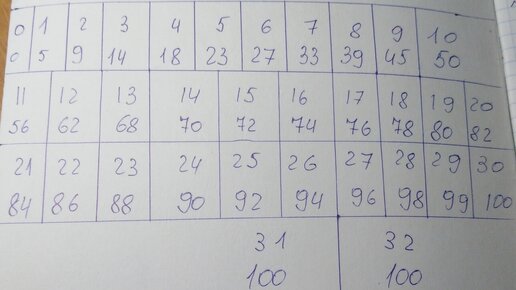 0 1 2 3 4 5 6 7 8 9 10
0 5 9 14 18 23 27 33 39 45 50
11 12 13 14 15 16 17 18 19 20
56 62 68 70 72 74 76 78 80 82
21 22 23 24 25 26 27 28 29 30
84 86 88 90 92 94 96 98 99 100
31 32
100 100